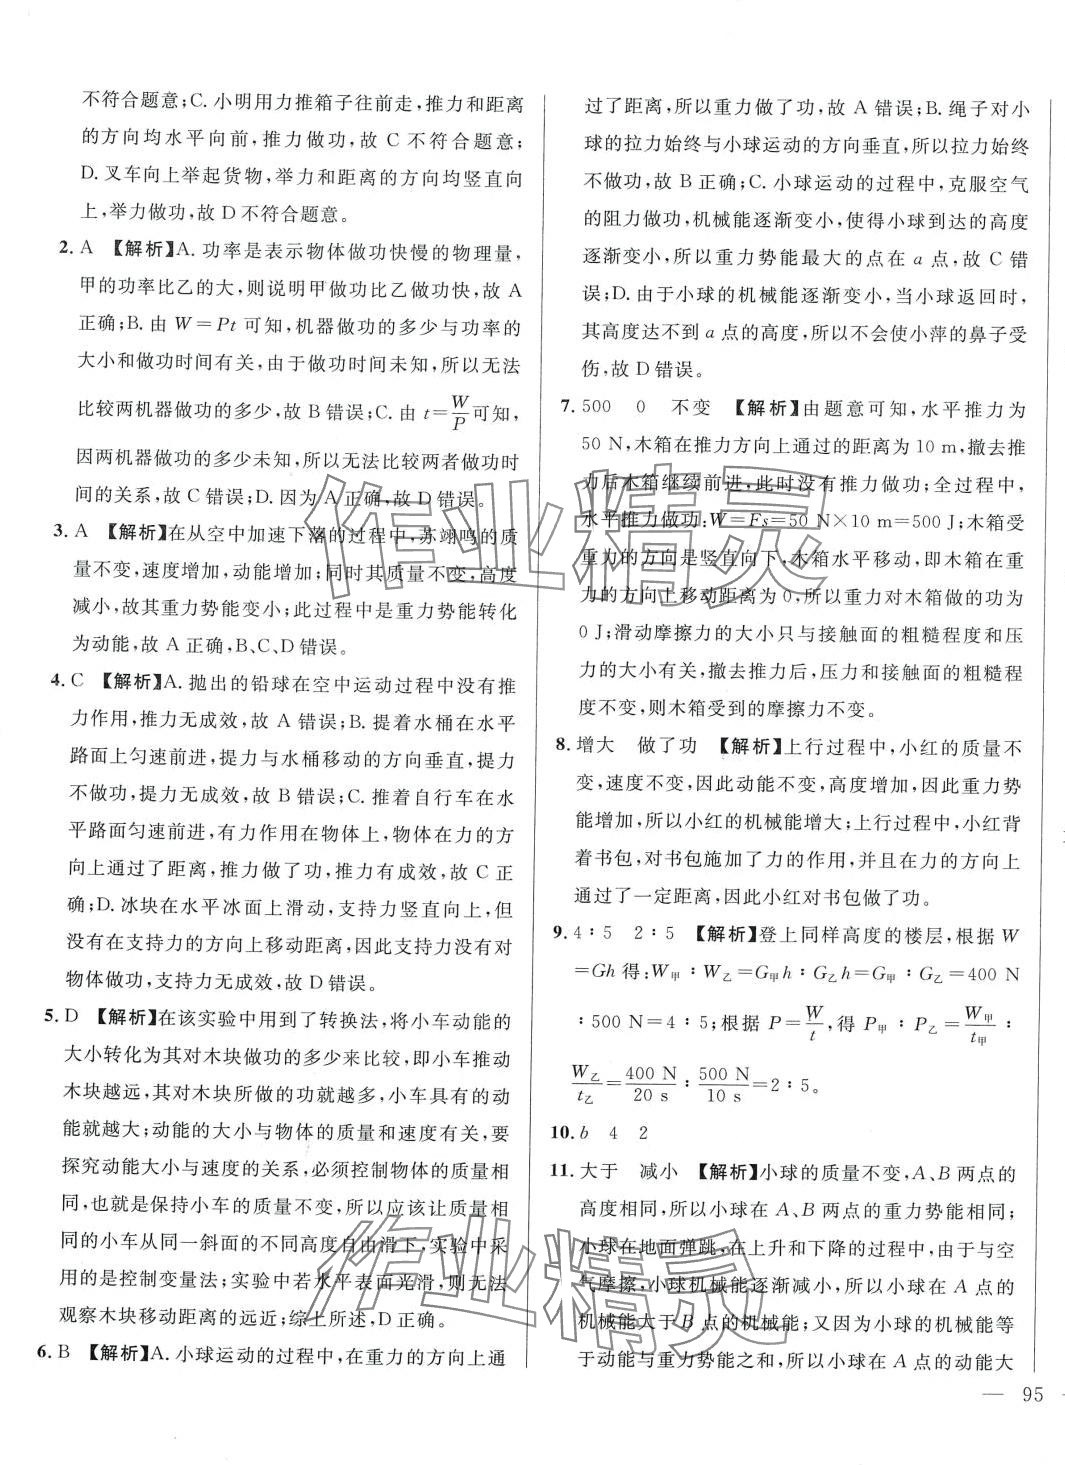 不符合题意;C. 小明用力推箱子往前走,推力和距离
的方向均水平向前,推力做功,故 C 不符合题意;
D. 叉车向上举起货物,举力和距离的方向均竖直向
上,举力做功,故 D 不符合题意。
2. A 【解析】A. 功率是表示物体做功快慢的物理量,
甲的功率比乙的大,则说明甲做功比乙做功快,故 A
正确;B. 由 W=Pt 可知,机器做功的多少与功率的
大小和做功时间有关,由于做功时间未知,所以无法
比较两机器做功的多少,故 B 错误;C. 由 t=W/P可知,
因两机器做功的多少未知,所以无法比较两者做功时
间的关系,故 C 错误;D. 因为 A 正确,故 D 错误。
3. A 【解析】在从空中加速下落的过程中,苏翊鸣的质
量不变,速度增加,动能增加;同时其质量不变,高度
减小,故其重力势能变小;此过程中是重力势能转化
为动能,故 A 正确,B、C、D 错误。
4. C 【解析】A. 抛出的铅球在空中运动过程中没有推
力作用,推力无成效,故 A 错误;B. 提着水桶在水平
路面上匀速前进,提力与水桶移动的方向垂直,提力
不做功,提力无成效,故 B 错误;C. 推着自行车在水
平路面匀速前进,有力作用在物体上,物体在力的方
向上通过了距离,推力做了功,推力有成效,故 C 正
确;D. 冰块在水平冰面上滑动,支持力竖直向上,但
没有在支持力的方向上移动距离,因此支持力没有对
物体做功,支持力无成效,故 D 错误。
5. D 【解析】在该实验中用到了转换法,将小车动能的
大小转化为其对木块做功的多少来比较,即小车推动
木块越远,其对木块所做的功就越多,小车具有的动
能就越大;动能的大小与物体的质量和速度有关,要
探究动能大小与速度的关系,必须控制物体的质量相
同,也就是保持小车的质量不变,所以应该让质量相
同的小车从同一斜面的不同高度自由滑下,实验中采
用的是控制变量法;实验中若水平表面光滑,则无法
观察木块移动距离的远近;综上所述,D 正确。
6. B 【解析】A. 小球运动的过程中,在重力的方向上通
过了距离,所以重力做了功,故 A 错误;B. 绳子对小
球的拉力始终与小球运动的方向垂直,所以拉力始终
不做功,故 B 正确;C. 小球运动的过程中,克服空气
的阻力做功,机械能逐渐变小,使得小球到达的高度
逐渐变小,所以重力势能最大的点在 a 点,故 C 错
误;D. 由于小球的机械能逐渐变小,当小球返回时,
其高度达不到 a 点的高度,所以不会使小萍的鼻子受
伤,故 D 错误。
7. 500 0 不变 【解析】由题意可知,水平推力为
50 N,木箱在推力方向上通过的距离为 10 m,撤去推
力后木箱继续前进,此时没有推力做功;全过程中,
水平推力做功:W=Fs=50 N×10 m=500 J;木箱受
重力的方向是竖直向下,木箱水平移动,即木箱在重
力的方向上移动距离为 0,所以重力对木箱做的功为
0 J;滑动摩擦力的大小只与接触面的粗糙程度和压
力的大小有关,撤去推力后,压力和接触面的粗糙程
度不变,则木箱受到的摩擦力不变。
8. 增大 做了功 【解析】上行过程中,小红的质量不
变,速度不变,因此动能不变,高度增加,因此重力势
能增加,所以小红的机械能增大;上行过程中,小红背
着书包,对书包施加了力的作用,并且在力的方向上
通过了一定距离,因此小红对书包做了功。
9. 4∶5 2∶5 【解析】登上同样高度的楼层,根据 W
=Gh 得;W甲∶W乙=G甲h∶G乙h=G甲∶G乙=400 N
∶500 N=4∶5;根据 P=W/t,得 P甲∶P乙=W甲/t甲∶
W乙/t乙=400 N/20 s∶500 N/10 s=2∶5。
10. b 4 2
11. 大于 减小 【解析】小球的质量不变,A、B 两点的
高度相同,所以小球在 A、B 两点的重力势能相同;
小球在地面弹跳,在上升和下降的过程中,由于与空
气摩擦,小球机械能逐渐减小,所以小球在 A 点的
机械能大于 B 点的机械能;又因为小球的机械能等
于动能与重力势能之和,所以小球在 A 点的动能大
— 95
作业精灵
作业精灵